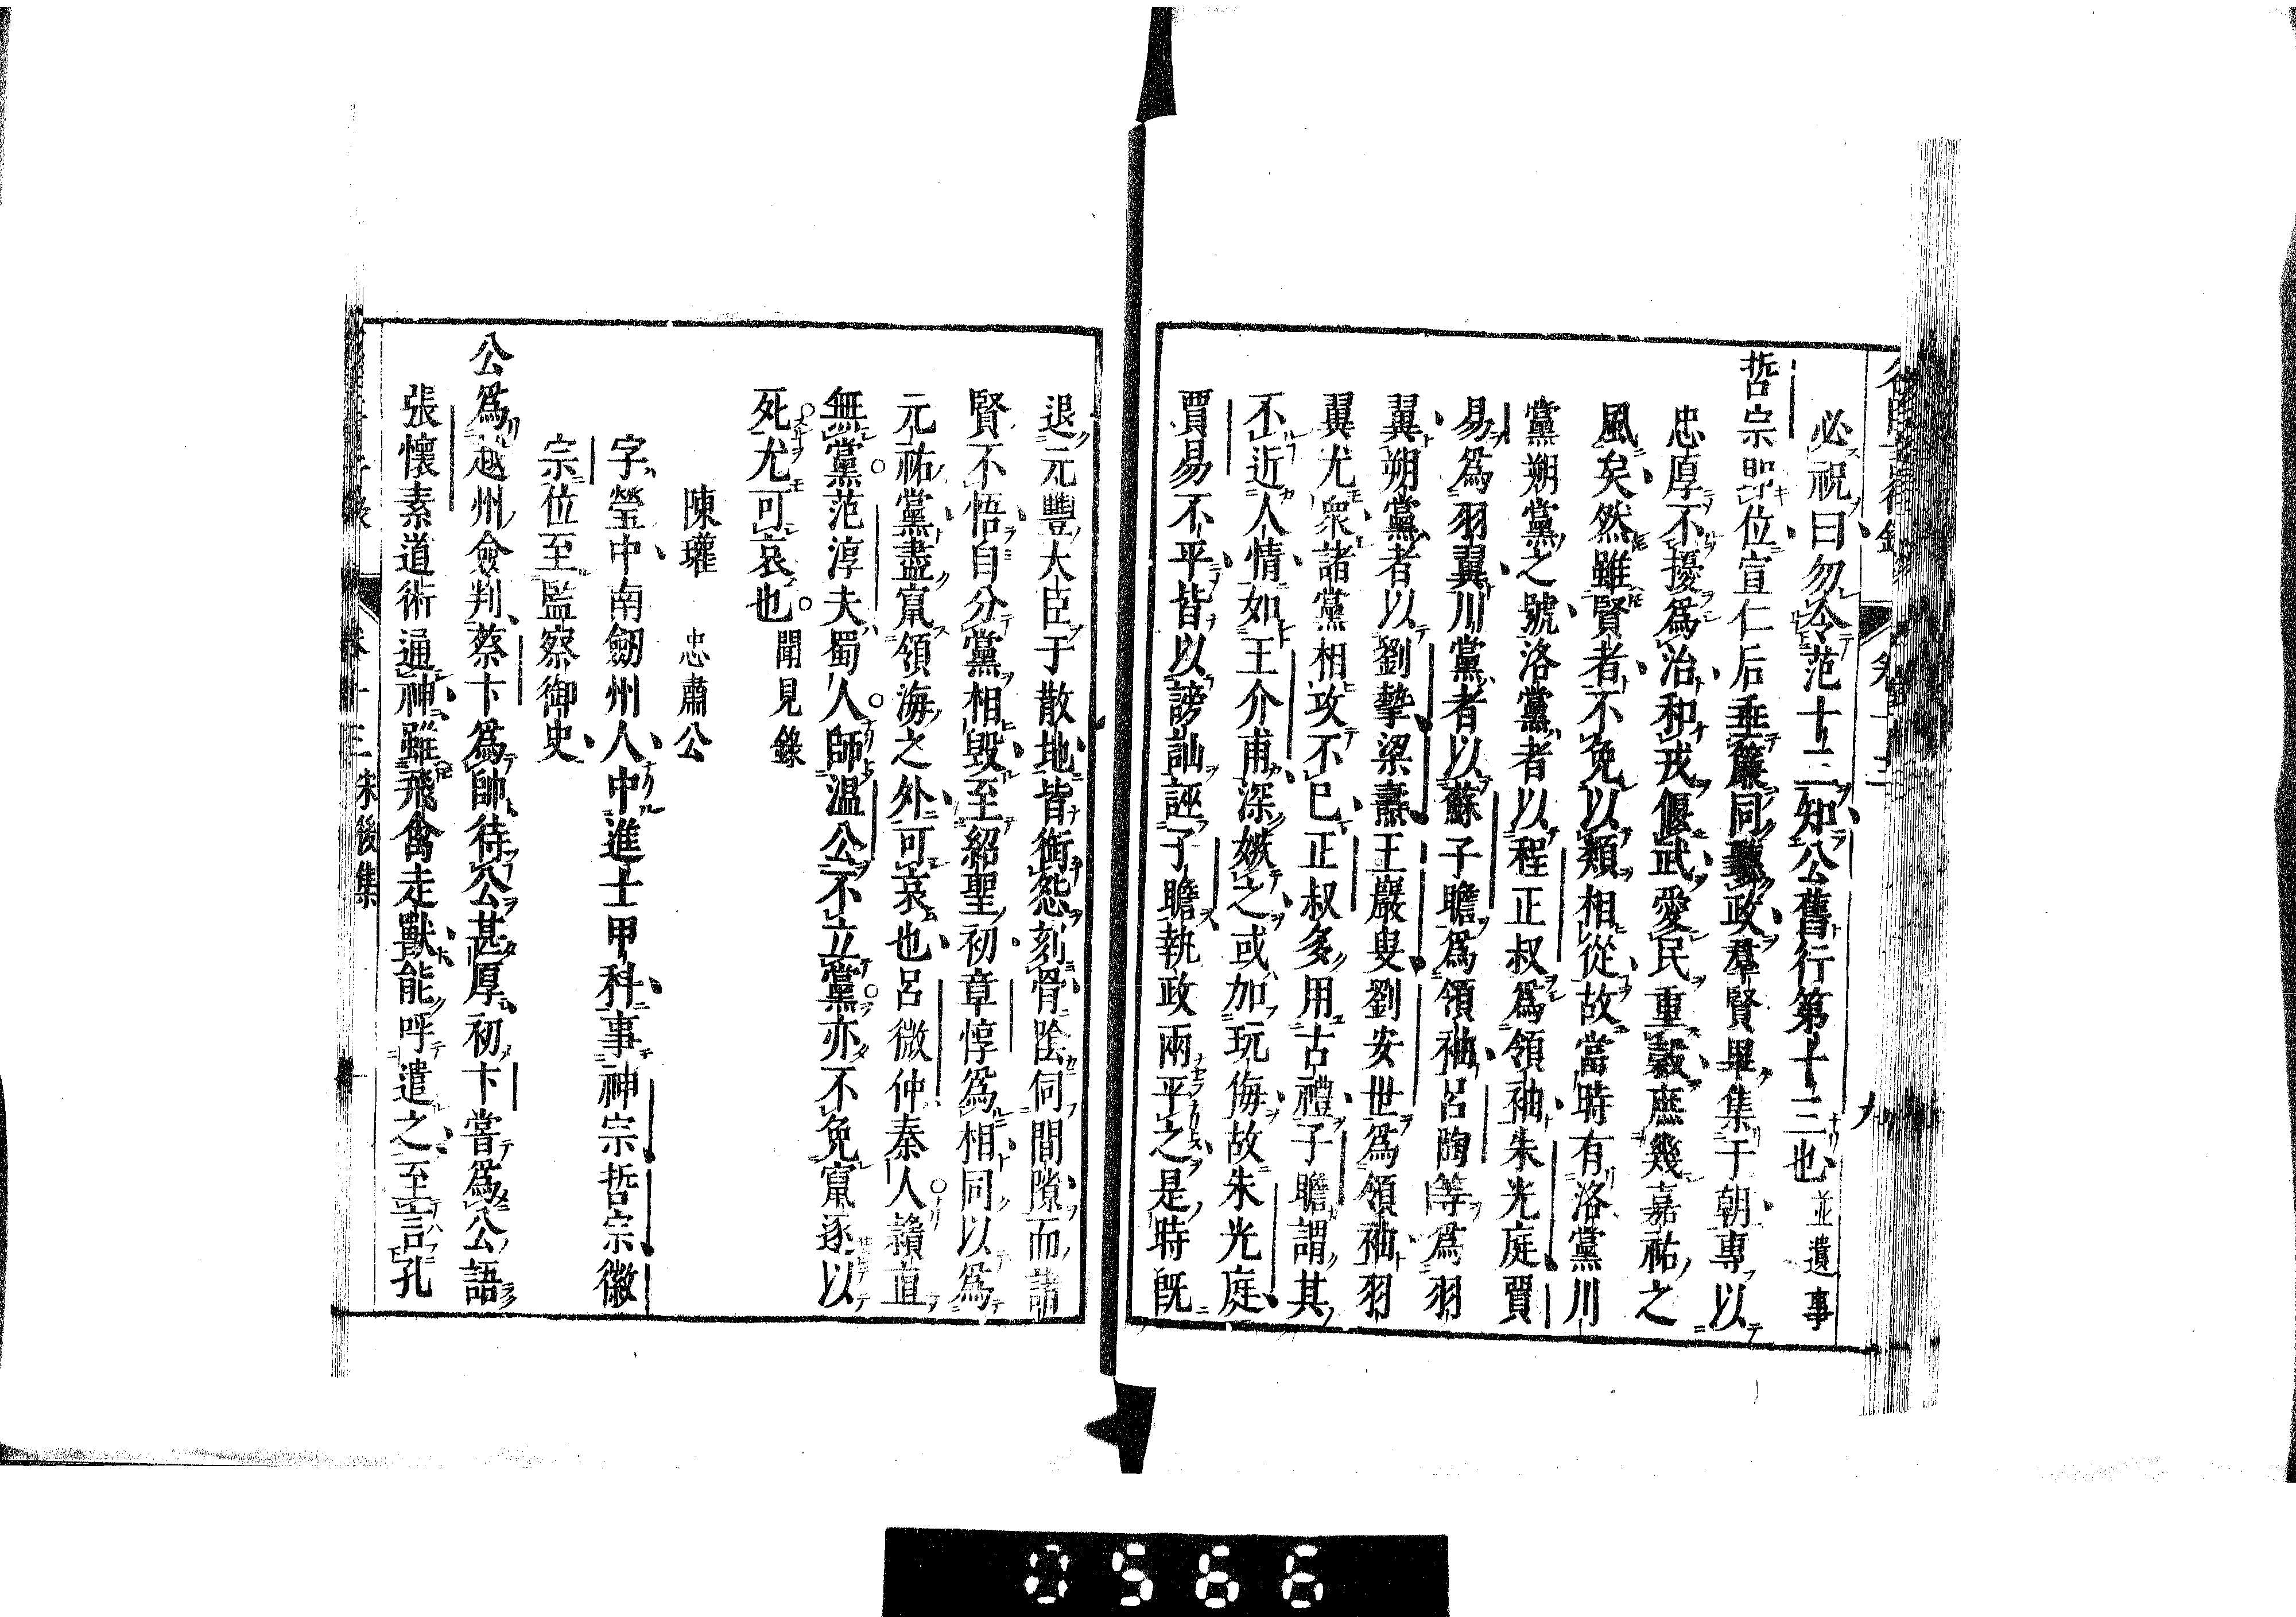 必祝曰勿令范十三知公舊行第十三也 並遺事
哲宗即位宣仁后垂簾同聽政羣賢畢集于朝專以
忠厚不擾爲治和戎偃武愛民重穀庶幾嘉祐之
風矣然雖賢者不免以類相從故當時有洛黨川
黨朔黨之號洛黨者以程正叔爲領袖朱光庭賈
易爲羽翼川黨者以蘇子瞻爲領袖呂陶等爲羽
翼朔黨者以劉摯梁燾王巖叟劉安世爲領袖羽
翼尤衆諸黨相攻不已正叔多用古禮子瞻謂其
不近人情如王介甫深嫉之或加玩侮故朱光庭
賈易不平皆以謗訕誣子瞻執政兩平之是時既
退元豐大臣于散地皆銜怨刻骨陰伺間隙而諸
賢不悟自分黨相毀至紹聖初章惇爲相同以爲
元祐黨盡竄領海之外可哀也呂微仲秦人戇直
無黨范淳夫蜀人師温公不立黨亦不免竄逐以
死尤可哀也 聞見錄
陳瓘 忠肅公
字瑩中南劒州人中進士甲科事神宗哲宗徽
宗位至監察御史
公爲越州僉判蔡卞爲帥待公甚厚初卞嘗爲公語
張懷素道術通神雖飛禽走獸能呼遣之至言孔
卷十三 宋後集
0566